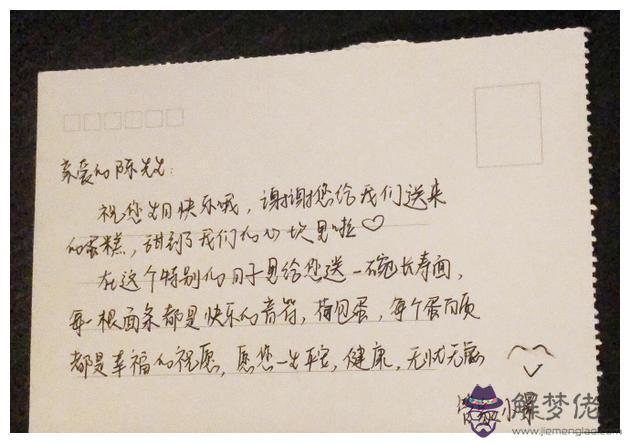 亲爱的陈先生：
祝您生日快乐哦，谢谢您给我们送来
的蛋糕，甜到了我们的心坎里啦♡
在这个特别的日子里给您送一碗长寿面，
每一根面条都是快乐的音符，荷包蛋，每个蛋白质
都是幸福的祝愿，愿您一生平安，健康，无忧无虑
解梦佬
www.jiemenglao.com